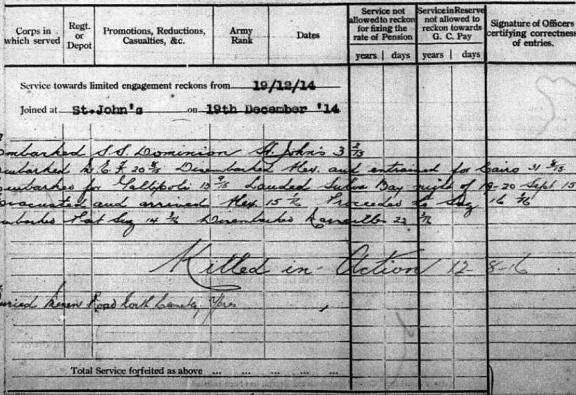 Corps in which served
Regt. or Depot
Promotions, Reductions, Casualties, &c.
Army Rank
Dates
Service not allowed to reckon for fixing the rate of Pension
years days
Service in Reserve not allowed to reckon towards G. C. Pay
years days
Signature of Officers certifying correctness of entries.
Service towards limited engagement reckons from 19/12/14
Joined at St.John's on 19th December '14
mbarked S.S. Dominion St. John's 3
mbarked M.E.F. 20 Disembarked Alex. and entrained for Cairo 31
mbarked for Gallipoli 13 Landed Suvla Bay night of 19-20 Sept 15
vacuated and arrived Alex. 15 Proceeded to Suez 16
Port Suez 14 Disembarked Marseilles 22
Killed in Action 12-8-16
uried Menin Road South Ypres
Total Service forfeited as above ... ... ... ...